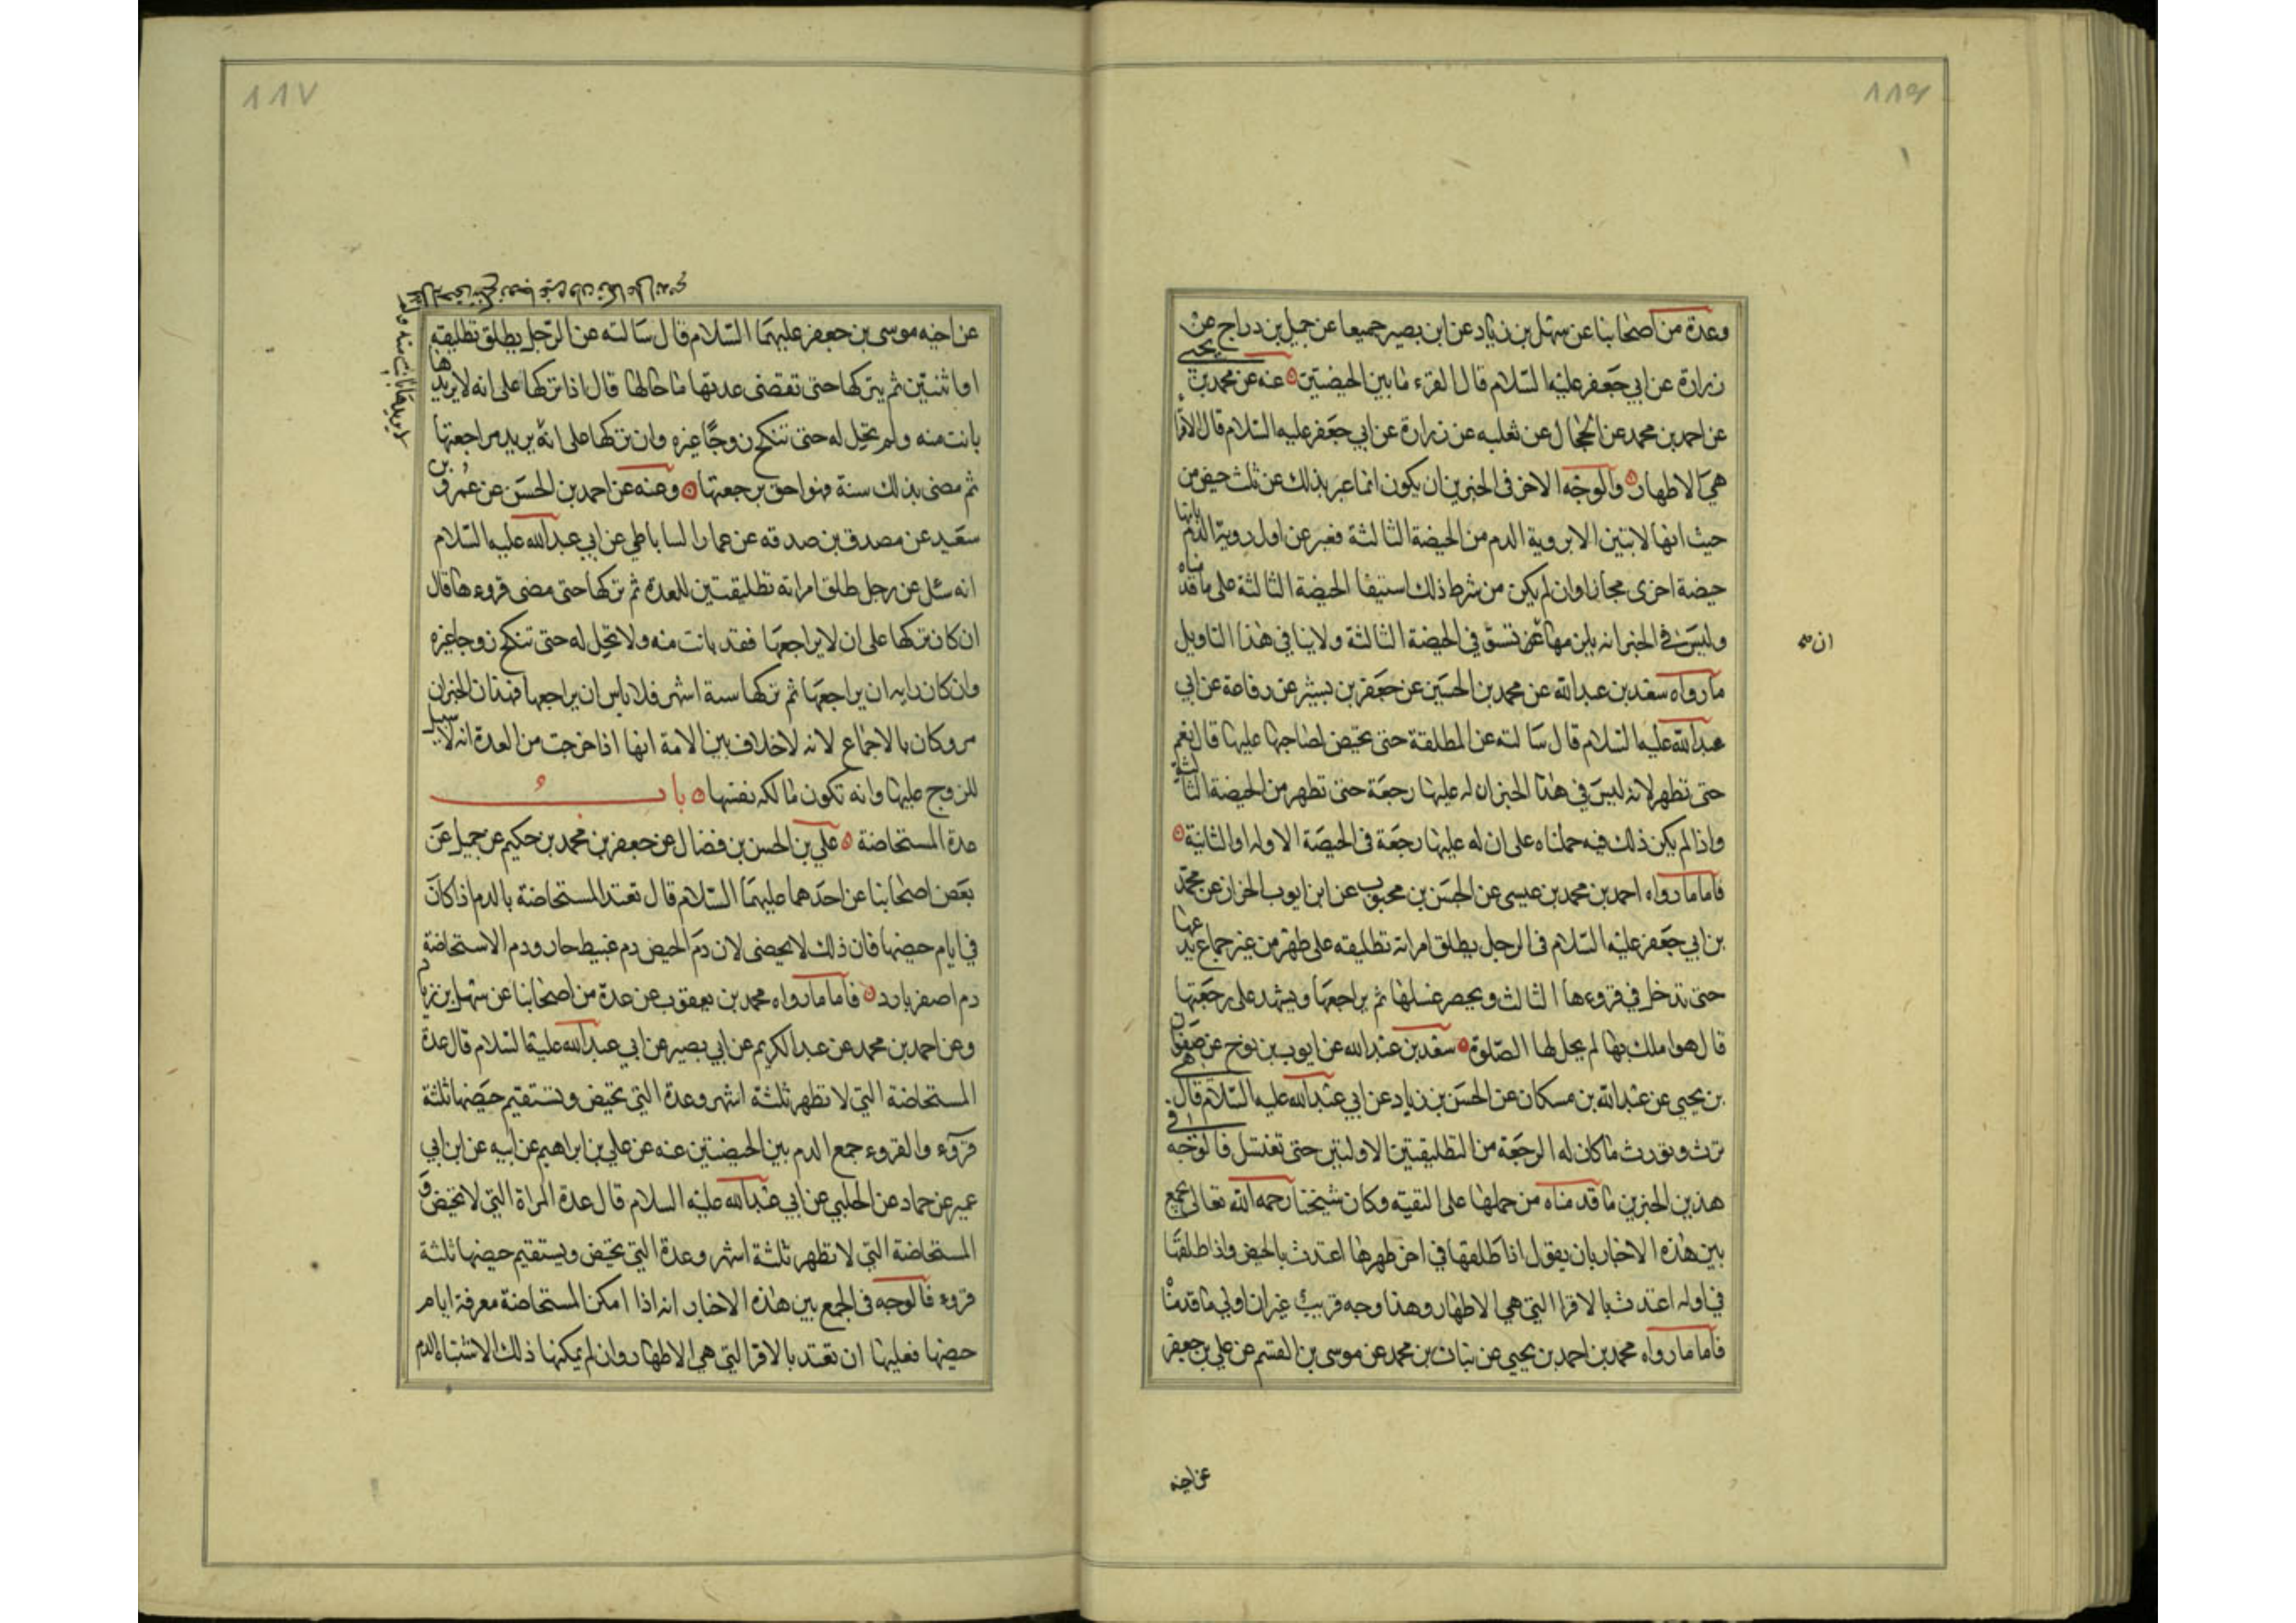 ١١٦
وعدة من اصحابنا عن سهل بن زياد عن ابن بصير جميعا عن جميل بن دراج عن
زرارة عن ابي جعفر عليه السلام قال القرء ما بين الحيضتين عنه عن محمد بن يحيى
عن احمد بن محمد عن الحجال عن ثعلبه عن زرارة عن ابي جعفر عليه السلام قال الاقرا
هي الاطهار والوجه الاخر في الخبرين ان يكون انما عبر بذلك عن ثلث حيض من
حيث انها لا تبين الا بروية الدم من الحيضة الثالثة فعبر عن اول روية الدم بانها
حيضة اخرى مجازا وان لم يكن من شرط ذلك استيفا الحيضة الثالثة على ما قدمناه
وليس في الخبر انه يلزمها تستوفي الحيضة الثالثة ولا ينافي هذا التاويل
ان صح
ما رواه سعد بن عبد الله عن محمد بن الحسين عن جعفر بن بشير عن رفاعة عن ابي
عبد الله عليه السلام قال سالته عن المطلقة حتى تحيض لصاحبها عليها قال نعم
حتى تطهر لانه ليس في هذا الخبر ان له عليها رجعة حتى تطهر من الحيضة الثالثة
واذا لم يكن ذلك فيه حملناه على ان له عليها رجعة في الحيضة الاوله او الثانية
فاما ما رواه احمد بن محمد بن عيسى عن الحسن بن محبوب عن ابن ايوب الخزاز عن محمد
بن ابي جعفر عليه السلام في الرجل يطلق امراته تطليقه على طهر من غير جماع يدعها
حتى تدخل في قروءها الثالث ويحضر غسلها ثم يراجعها ويشهد على رجعتها
قال هو املك بها لم يحل لها الصلوة سعد بن عبد الله عن ايوب بن نوح عن صفوان
بن يحيى عن عبد الله بن مسكان عن الحسن بن زياد عن ابي عبد الله عليه السلام قال هي
ترث وتورث ما كان له الرجعة من التطليقتين الاولتين حتى تغتسل فالوجه في
هذين الخبرين ما قدمناه من حملها على التقيه وكان شيخنا رحمه الله تعالى يجمع
بين هذه الاخبار بان يقول اذا طلقها في اخر طهرها اعتدت بالحيض واذا طلقها
في اوله اعتدت بالاقرا التي هي الاطهار وهذا وجه قريب غير ان اولى ما قدمنا
فاما ما رواه محمد بن احمد بن يحيى عن بنان بن محمد عن موسى بن القسم عن علي بن جعفر
عن اخيه
١١٧
عن اخيه موسى بن جعفر عليهما السلام قال سالته عن الرجل يطلق تطليقه
او اثنتين ثم يتركها حتى تقضى عدتها ما حالها قال اذا تركها على انه لا يريدها
بانت منه ولم تحل له حتى تنكح زوجا غيره وان تركها على انه يريد مراجعتها
ثم مضى بذلك سنة فهو احق برجعتها وعنه عن احمد بن الحسن عن عمرو بن
سعيد عن مصدق بن صدقه عن عمار الساباطي عن ابي عبد الله عليه السلام
انه سئل عن رجل طلق امراته تطليقتين للعدة ثم تركها حتى مضى قروءها قال
ان كان تركها على ان لا يراجعها فقد بانت منه ولا تحل له حتى تنكح زوجا غيره
وان كان رايه ان يراجعها ثم تركها سنة اشهر فلا باس ان يراجعها فهذان الخبران
متروكان بالاجماع لانه لا خلاف بين الامة انها اذا خرجت من العدة انه لا سبيل
للزوج عليها وانه تكون مالكه نفسها باب
عدة المستحاضة علي بن الحسن بن فضال عن جعفر بن محمد بن حكيم عن جميل عن
بعض اصحابنا عن احدهما عليهما السلام قال تعتد المستحاضة بالدم اذا كان
في ايام حيضها فان ذلك لا يحضى لان دم الحيض دم عبيط حار ودم الاستحاضة
دم اصفر بارد فاما ما رواه محمد بن يعقوب عن عدة من اصحابنا عن سهل بن زياد
وعن احمد بن محمد عن عبد الكريم عن ابي بصير عن ابي عبد الله عليه السلام قال عدة
المستحاضة التي لا تطهر ثلثة اشهر وعدة التي تحيض وتستقيم حيضها ثلثة
قروء والقروء جمع الدم بين الحيضتين عنه عن علي بن ابراهيم عن ابيه عن ابن ابي
عمير عن حماد عن الحلبي عن ابي عبد الله عليه السلام قال عدة المراة التي لا تحيض و
المستحاضة التي لا تطهر ثلثة اشهر وعدة التي تحيض ويستقيم حيضها ثلثة
قروء فالوجه في الجمع بين هذه الاخبار انه اذا امكن المستحاضة معرفة ايام
حيضها فعليها ان تعتد بالاقرا التي هي الاطهار وان لم يمكنها ذلك لاشتباه الدم